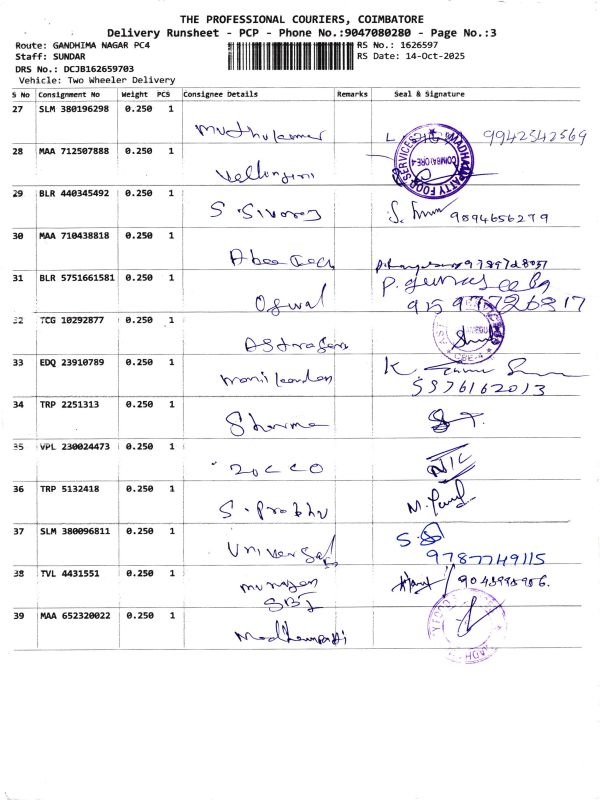 THE PROFESSIONAL COURIERS, COIMBATORE
Delivery Runsheet - PCP - Phone No.:9047080280 - Page No.:3
Route: GANDHIMA NAGAR PC4
RS No.: 1626597
Staff: SUNDAR
RS Date: 14-Oct-2025
DRS No.: DCJB162659703
Vehicle: Two Wheeler Delivery
S No Consignment No Weight PCS Consignee Details Remarks Seal & Signature
27 SLM 380196298 0.250 1
Muthukumar 9942542569
28 MAA 712507888 0.250 1
Vellingiri
MADHAMPATTY FOOD SERVICES COIMBATORE-4
29 BLR 440345492 0.250 1
S. Sivaraj 9094656279
30 MAA 710438818 0.250 1
Abee Tech
31 BLR 5751661581 0.250 1
Oswal
32 TCG 10292877 0.250 1
CBE-4
33 EDQ 23910789 0.250 1
Manikandan K
34 TRP 2251313 0.250 1
Sharma
35 VPL 230024473 0.250 1
36 TRP 5132418 0.250 1
S. Prabhu
37 SLM 380096811 0.250 1
Universal 9787749115
38 TVL 4431551 0.250 1
Murugan
SBI
39 MAA 652320022 0.250 1
Madhampatti